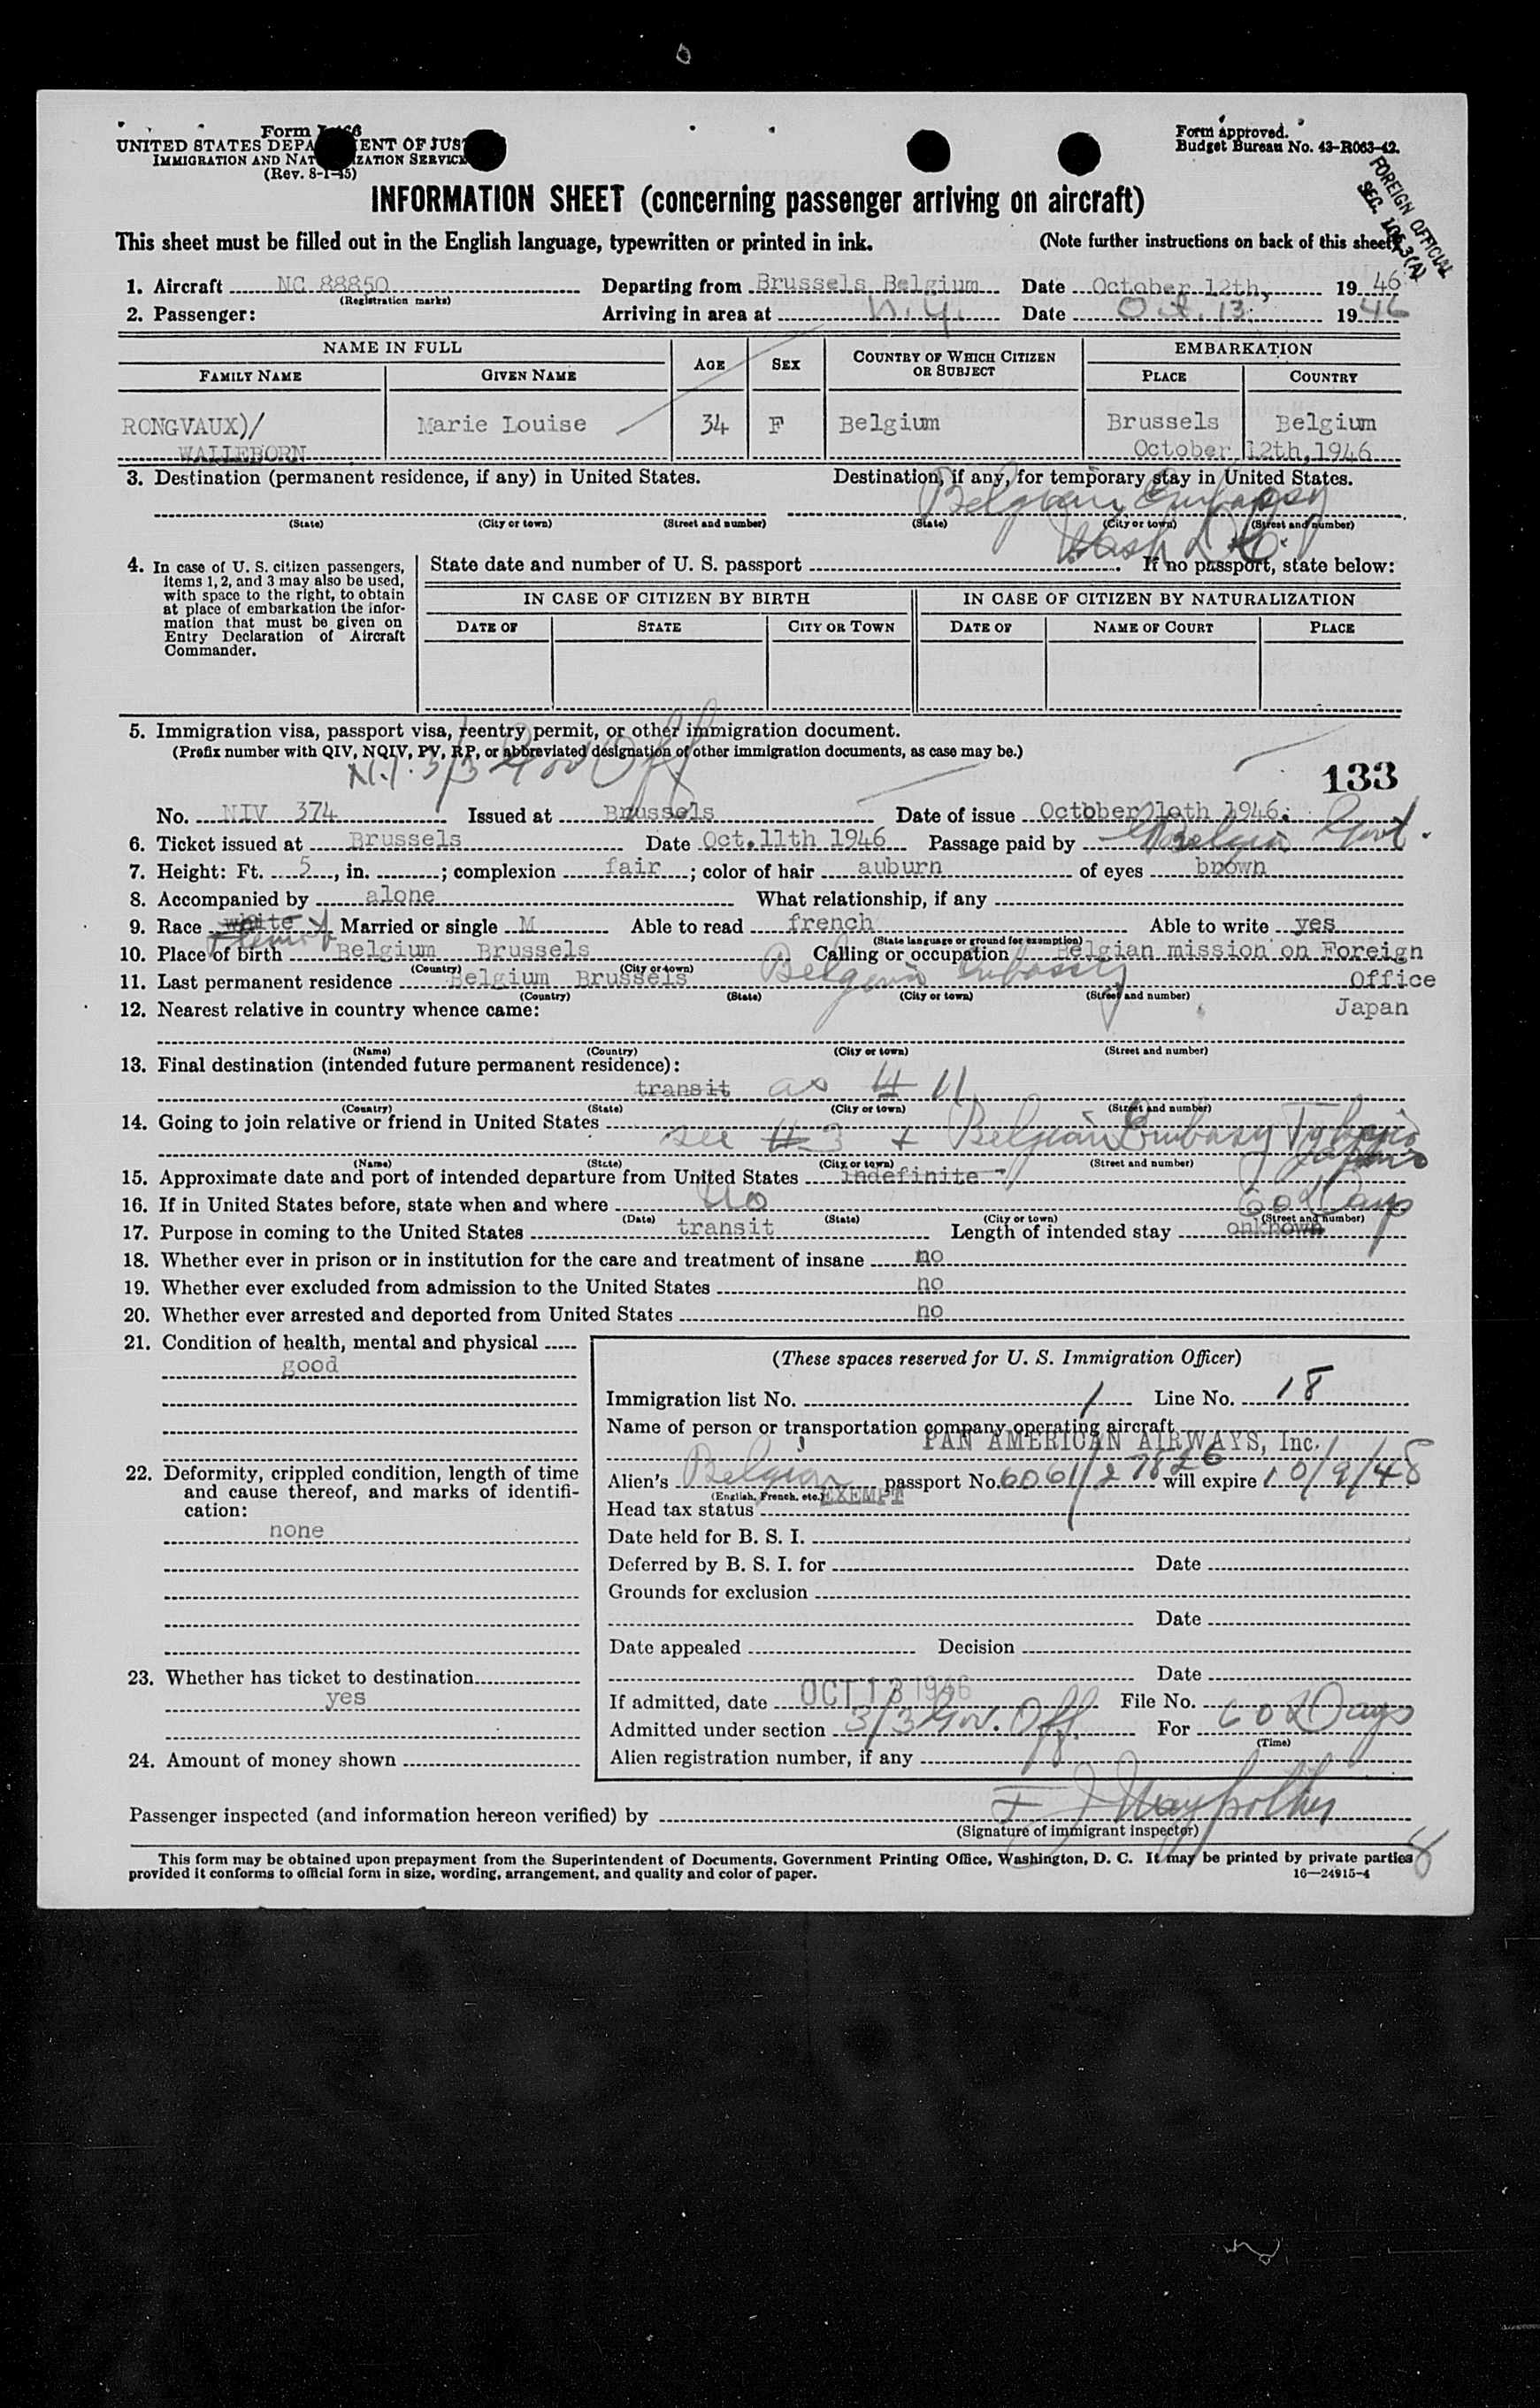 Form I-466
UNITED STATES DEPARTMENT OF JUSTICE
IMMIGRATION AND NATURALIZATION SERVICE
(Rev. 8-1-45)
Form approved.
Budget Bureau No. 43-R063-42.
FOREIGN OFFICIAL
SEC. 105.3(A)
INFORMATION SHEET (concerning passenger arriving on aircraft)
This sheet must be filled out in the English language, typewritten or printed in ink. (Note further instructions on back of this sheet)
1. Aircraft NC 88850 Departing from Brussels Belgium Date October 12th, 19 46
(Registration marks)
2. Passenger: Arriving in area at N.Y. Date Oct. 13. 19 46
NAME IN FULL AGE SEX COUNTRY OF WHICH CITIZEN OR SUBJECT EMBARKATION
FAMILY NAME GIVEN NAME PLACE COUNTRY
RONGVAUX)/ Marie Louise 34 F Belgium Brussels Belgium
WALLEBORN October 12th,1946
3. Destination (permanent residence, if any) in United States. Destination, if any, for temporary stay in United States.
Belgian Embassy
(State) (City or town) (Street and number) (State) (City or town) (Street and number)
Wash D.C.
4. In case of U. S. citizen passengers, items 1, 2, and 3 may also be used, with space to the right, to obtain at place of embarkation the information that must be given on Entry Declaration of Aircraft Commander.
State date and number of U. S. passport . If no passport, state below:
IN CASE OF CITIZEN BY BIRTH IN CASE OF CITIZEN BY NATURALIZATION
DATE OF STATE CITY OR TOWN DATE OF NAME OF COURT PLACE
5. Immigration visa, passport visa, reentry permit, or other immigration document.
(Prefix number with QIV, NQIV, PV, RP, or abbreviated designation of other immigration documents, as case may be.)
3/3 Gov Off
133
No. NIV 374 Issued at Brussels Date of issue October 10th 1946.
6. Ticket issued at Brussels Date Oct.11th 1946 Passage paid by Belgian Govt.
7. Height: Ft. 5, in. ; complexion fair; color of hair auburn of eyes brown
8. Accompanied by alone What relationship, if any
9. Race white Married or single M Able to read french Able to write yes
Flemish
(State language or ground for exemption)
10. Place of birth Belgium Brussels Calling or occupation Belgian mission on Foreign
(Country) (City or town)
11. Last permanent residence Belgium Brussels Belgian Embassy Office
(Country) (State) (City or town) (Street and number)
12. Nearest relative in country whence came: Japan
(Name) (Country) (City or town) (Street and number)
13. Final destination (intended future permanent residence):
transit as # 11
(Country) (State) (City or town) (Street and number)
14. Going to join relative or friend in United States
see # 3 + Belgian Embassy Tokyo
Japan
(Name) (State) (City or town) (Street and number)
15. Approximate date and port of intended departure from United States indefinite
16. If in United States before, state when and where No 60 Days
(Date) (State) (City or town) (Street and number)
17. Purpose in coming to the United States transit Length of intended stay unknown
18. Whether ever in prison or in institution for the care and treatment of insane no
19. Whether ever excluded from admission to the United States no
20. Whether ever arrested and deported from United States no
21. Condition of health, mental and physical
good
22. Deformity, crippled condition, length of time and cause thereof, and marks of identification:
none
23. Whether has ticket to destination
yes
24. Amount of money shown
(These spaces reserved for U. S. Immigration Officer)
Immigration list No. 1 Line No. 18
Name of person or transportation company operating aircraft
PAN AMERICAN AIRWAYS, Inc.
Alien's Belgian passport No. 6061/27826 will expire 10/9/48
(English, French, etc.) EXEMPT
Head tax status
Date held for B. S. I.
Deferred by B. S. I. for Date
Grounds for exclusion
Date
Date appealed Decision
Date
If admitted, date OCT 13 1946 File No.
Admitted under section 3/3 Gov. Off. For 60 Days
(Time)
Alien registration number, if any
Passenger inspected (and information hereon verified) by
(Signature of immigrant inspector)
This form may be obtained upon prepayment from the Superintendent of Documents, Government Printing Office, Washington, D. C. It may be printed by private parties
provided it conforms to official form in size, wording, arrangement, and quality and color of paper. 16—24915-4